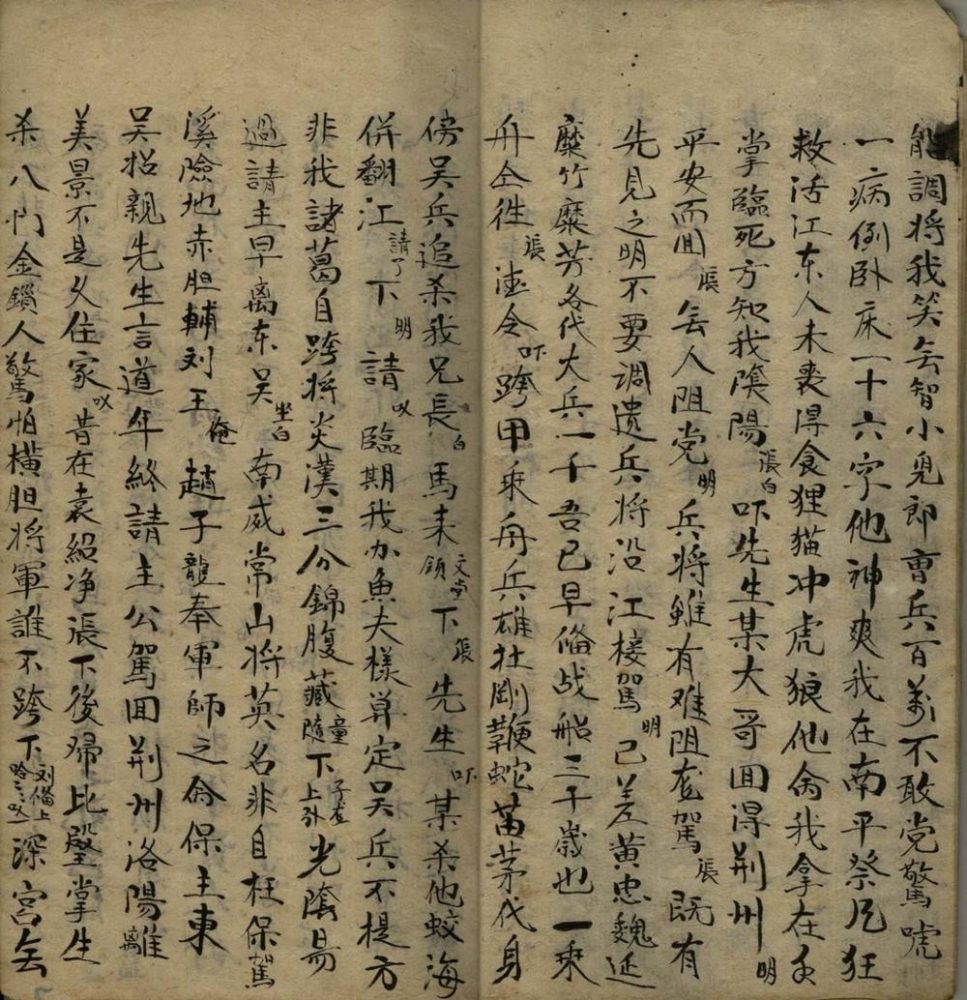 能調将我笑無智小兒郎曹兵百萬不敢党驚唬
一病倒卧床一十六字他神爽我在南平祭凡狂
救活江东人未喪得食狸猫冲虎狼他命我拿在手
掌臨死方知我陰陽張白吓先生某大哥回得荆州明
平安而回張無人阻党明兵将雖有难阻套駕張既有
先見之明不要調遣兵将沿江接駕明已差黄忠魏延
糜竹糜芳各代大兵一千吾已早俻战船三千歲也一乘
舟仝徃張速令吓跨甲乘舟兵雄壮剛鞭蛇苗茅代身
傍吴兵追杀我兄長白馬未領文堂下張先生吓某杀他蛟海
併翻江請了下明請叹臨期我办魚夫様算定吴兵不提方
非我諸葛自跨将炎漢三分錦腹藏童随下子龙上外光陰易
過請主早离东吴坐白南威常山将英名非自枉保駕
溪險地赤胆輔刘王俺趙子龍奉軍師之命保主東
吴招親先生言道年終請主公駕回荆州洛陽離
美景不是久住家叹昔在袁紹净張下後帰比堅掌生
杀八門金鎖人驚怕横胆将軍誰不跨下刘備上哈哈叹深宫無